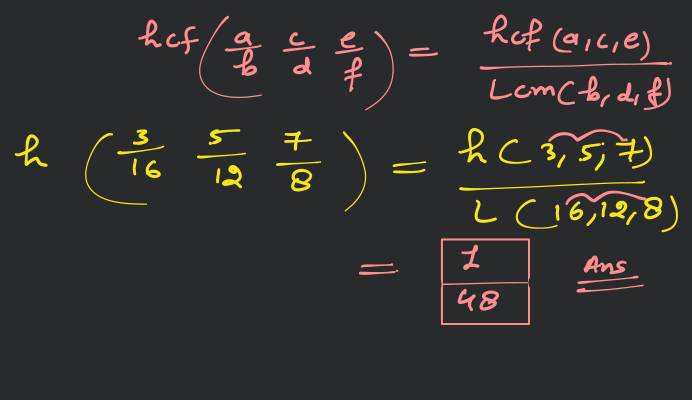 hcf(a/b c/d e/f) = hcf(a,c,e)/Lcm(b,d,f)
h (3/16 5/12 7/8) = h(3,5,7)/L(16,12,8)
= 1/48 Ans